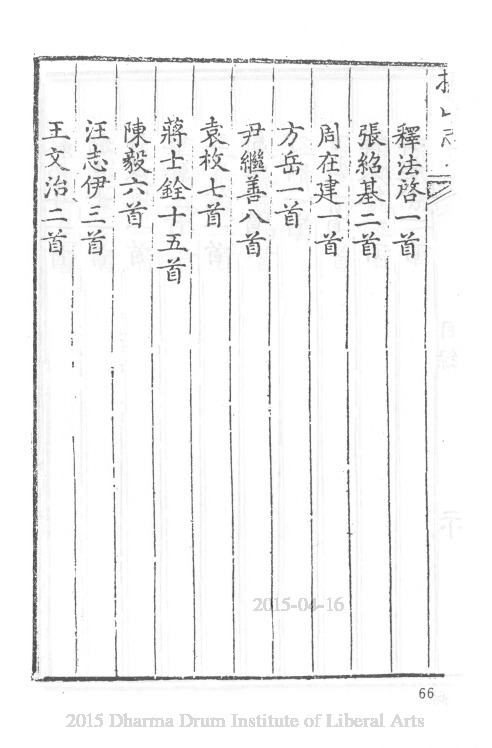 釋法啓一首
張紹基二首
周在建一首
方岳一首
尹繼善八首
袁枚七首
蔣士銓十五首
陳毅六首
汪志伊三首
王文治二首
2015-04-16
66
2015 Dharma Drum Institute of Liberal Arts